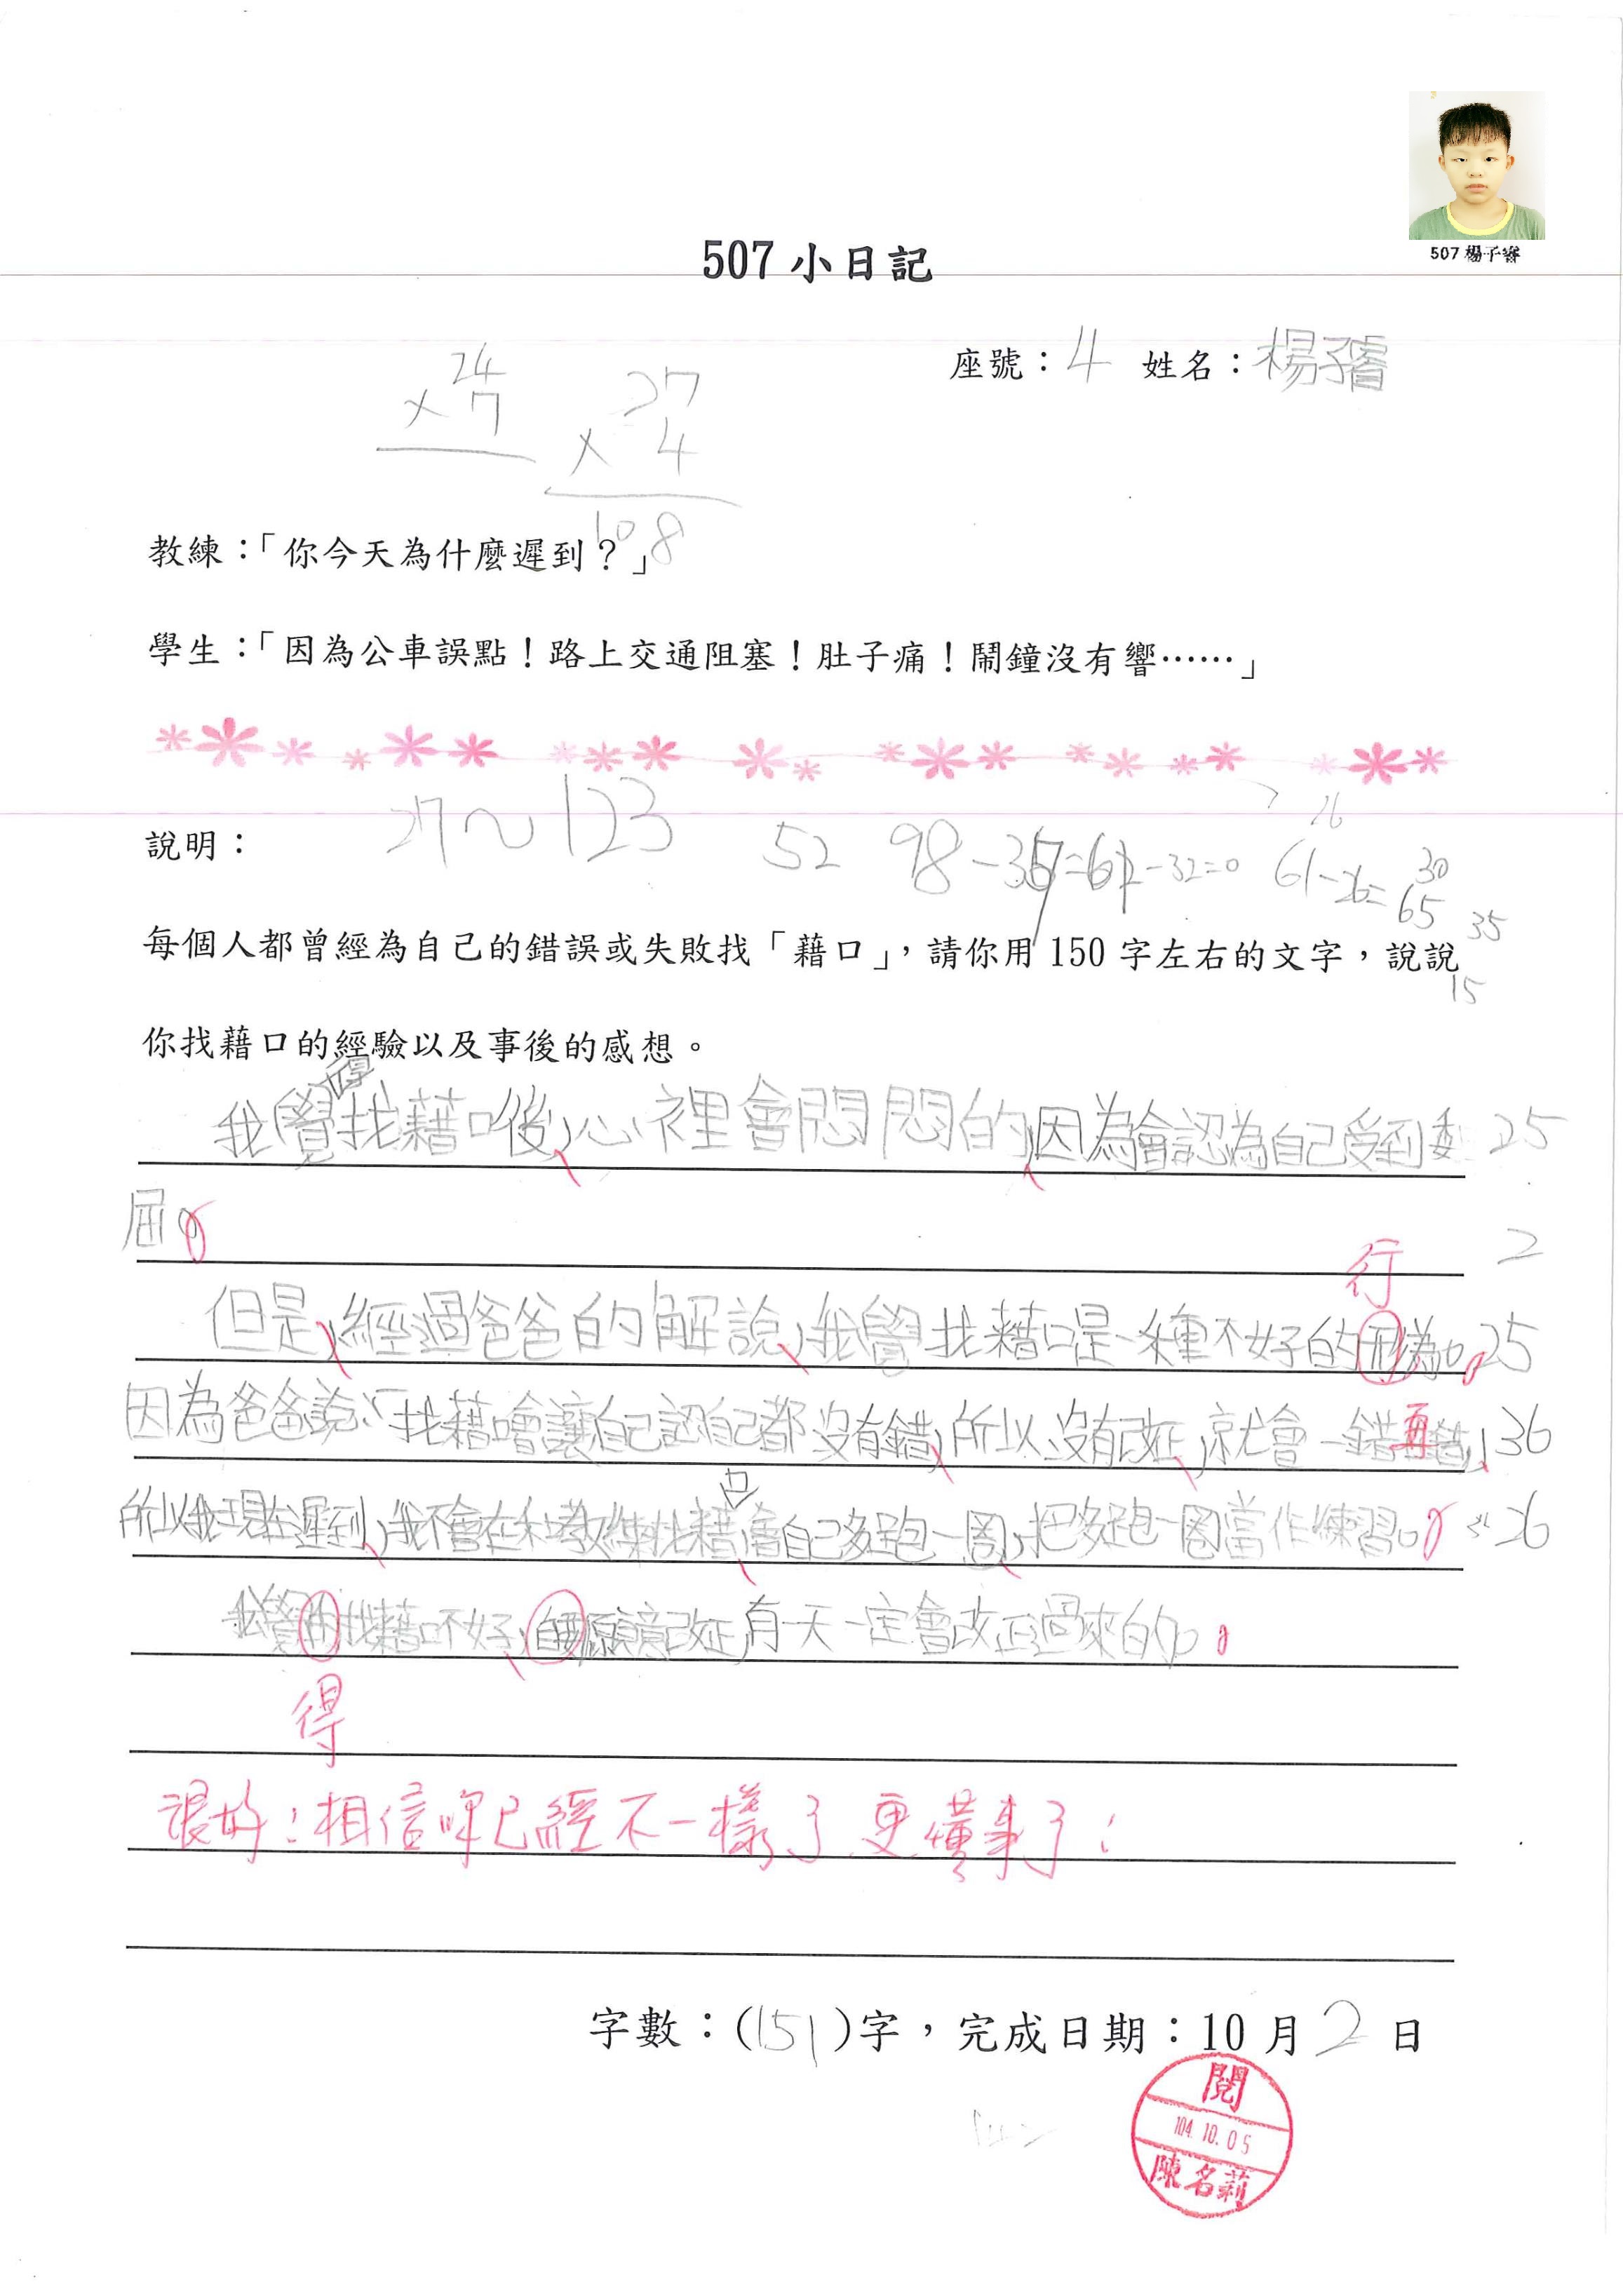 507 楊子睿
507 小日記
座號：4 姓名：楊子睿
24
×7
27
×4
108
教練：「你今天為什麼遲到？」
學生：「因為公車誤點！路上交通阻塞！肚子痛！鬧鐘沒有響……」
說明：
27~123 52 98-36 -32=0 61-26=
30
65 35
每個人都曾經為自己的錯誤或失敗找「藉口」，請你用 150 字左右的文字，說說
15
你找藉口的經驗以及事後的感想。
我覺得找藉口後，心裡會悶悶的，因為會認為自己受到委 25
屈。 2
行
但是，經過爸爸的解說，我覺找藉口是一種不好的為。 25
因為爸爸說：「找藉口會讓自己認自己都沒有錯，所以沒有改正，就會一錯再錯」， 36
所以我現在遲到，我不會在和教練找藉口，會自己多跑一圈，把多跑一圈當作練習。 26
我覺的找藉口不好，願意改正，有一天一定會改正過來的。
得
很好！相信你已經不一樣了，更懂事了！
字數：(151)字，完成日期：10 月 2 日
閱
104.10.05
陳名莉